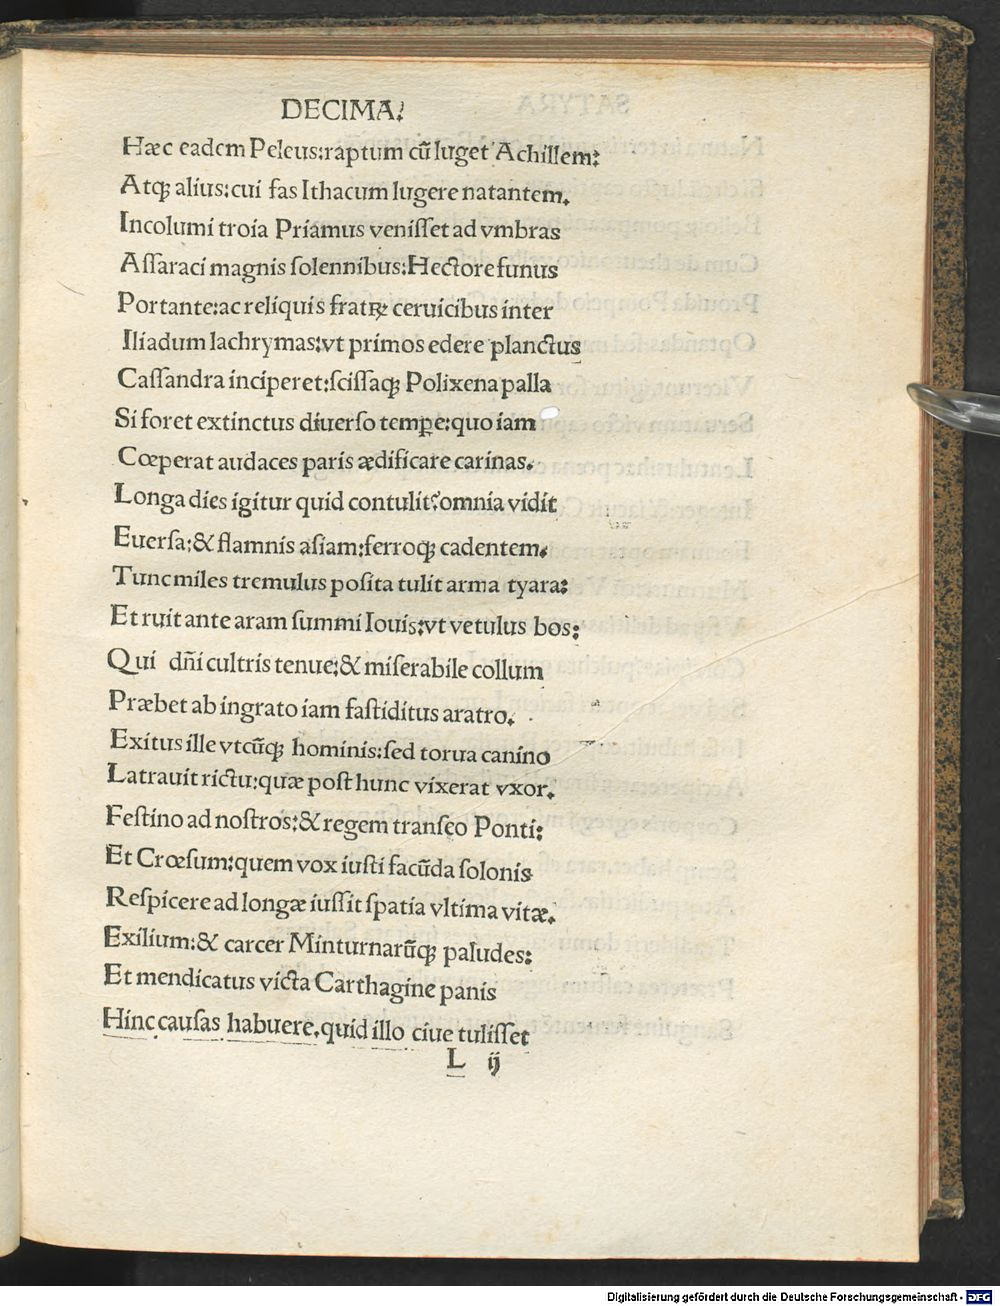 DECIMA.
Hæc eadem Peleus:raptum cū luget Achillem:
Atqꝫ alius:cui fas Ithacum lugere natantem.
Incolumi troia Priamus veniſſet ad vmbras
Aſſaraci magnis ſolennibus:Hectore funus
Portante:ac reliquis fratꝝ ceruicibus inter
Iliadum lachrymas:vt primos edere planctus
Caſſandra inciperet:ſciſſaqꝫ Polixena palla
Si foret extinctus diuerſo tempe:quo iam
Cœperat audaces paris ædificare carinas.
Longa dies igitur quid contulit?omnia vidit
Euerſa:& flamnis aſiam:ferroqꝫ cadentem.
Tunc miles tremulus poſita tulit arma tyara:
Et ruit ante aram ſummi Iouis:vt vetulus bos:
Qui dñi cultris tenue:& miſerabile collum
Præbet ab ingrato iam faſtiditus aratro.
Exitus ille vtcūqꝫ hominis:ſed torua canino
Latrauit rictu:quæ poſt hunc vixerat vxor.
Feſtino ad noſtros:& regem tranſeo Ponti:
Et Crœſum:quem vox iuſti facūda ſolonis
Reſpicere ad longæ iuſſit ſpatia vltima vitæ.
Exilium:& carcer Minturnarūqꝫ paludes:
Et mendicatus victa Carthagine panis
Hinc cauſas habuere.quid illo ciue tuliſſet
L ij
Digitalisierung gefördert durch die Deutsche Forschungsgemeinschaft - DFG